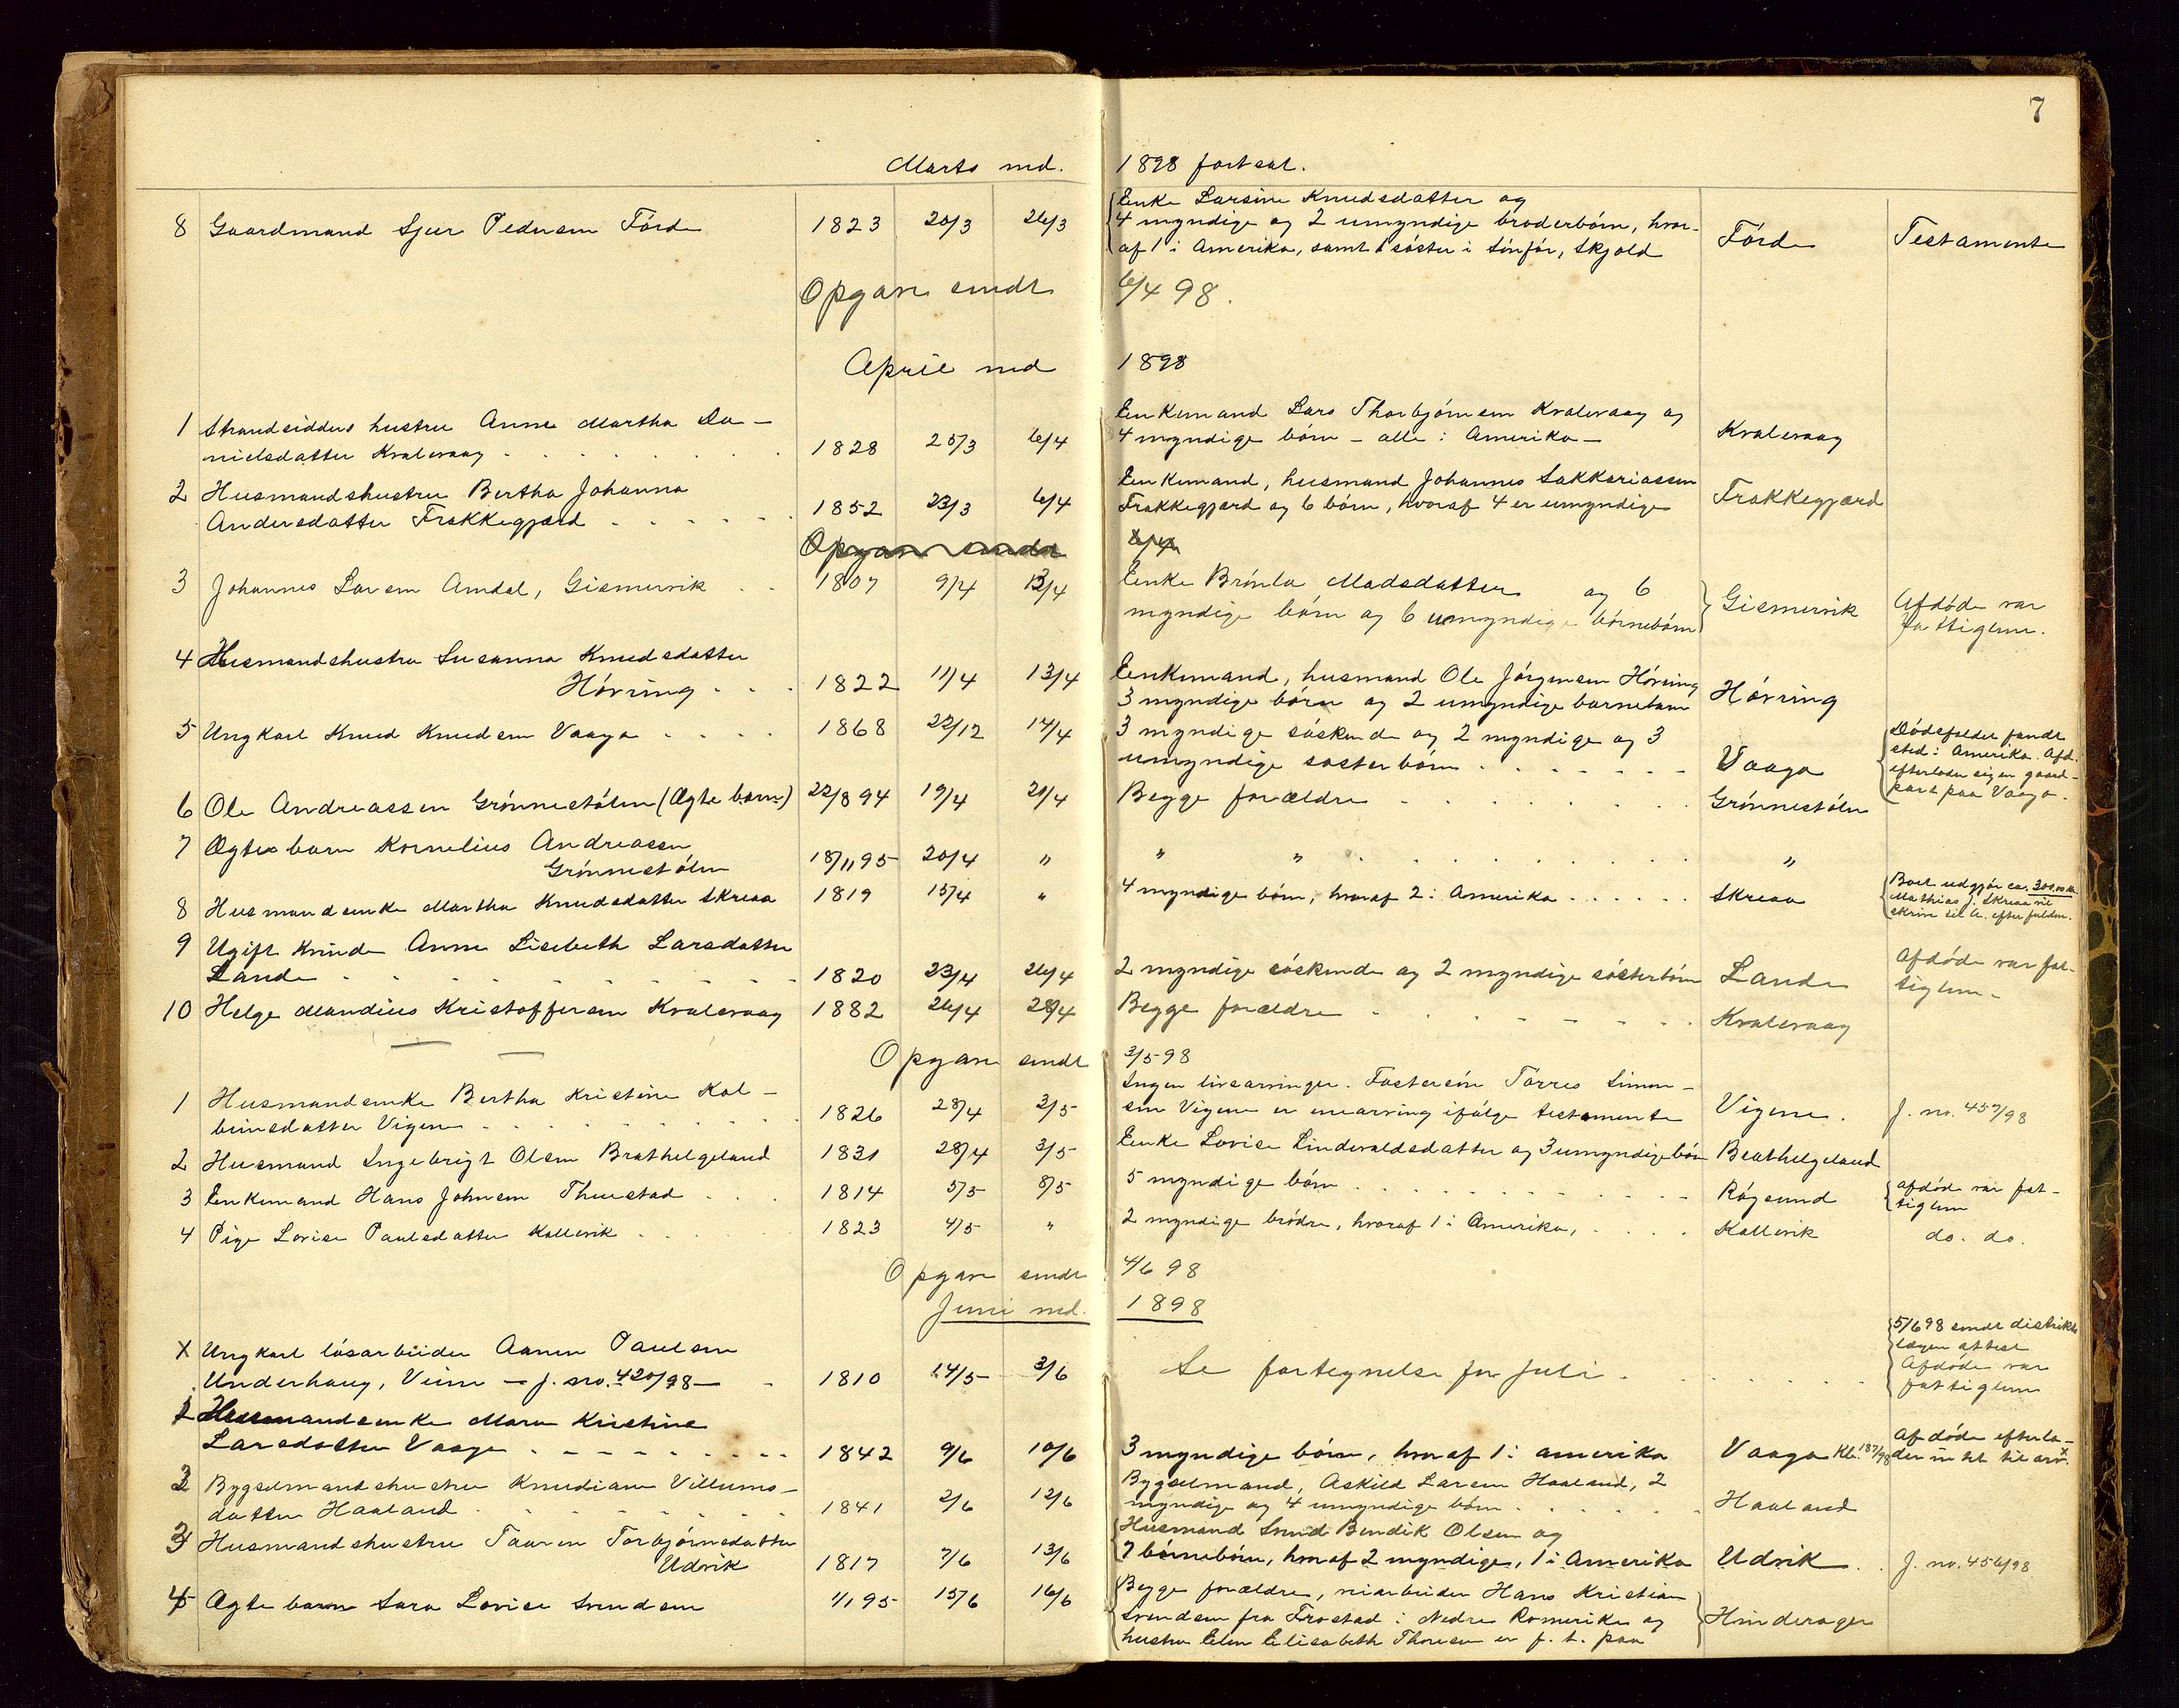 7
Marts md. 1898 fortsat.
8 Gaardmand Sjur Pedersen Förde 1823 20/3 26/3 Enke Larsine Knudsdatter og
4 myndige og 2 umyndige broderbörn, hvor-
af 1 i Amerika, samt 1 söster i Skjold Förde Testamente
Opgave sendt 6/4 98.
April md 1898
1 Strandsidders hustru Anne Martha Da-
nielsdatter Kvalevaag 1828 25/3 6/4 Enkemand Lars Thorbjörnsen Kvalevaag og
4 myndige börn – alle i Amerika – Kvalevaag
2 Husmandshustru Bertha Johanna
Andersdatter Frakkegjærd 1852 23/3 6/4 Enkemand, husmand Johannes Sakkariassen
Frakkegjærd og 6 börn, hvoraf 4 er umyndige Frakkegjærd
Opgave sendt
3 Johannes Larsen Amdal, Gismervik 1807 9/4 13/4 Enke Brönla Madsdatter og 6
myndige börn og 6 umyndige börnebörn Gismervik Afdöde var
fattiglem.
4 Husmandshustru Susanna Knudsdatter
Hövring 1822 11/4 13/4 Enkemand, husmand Ole Jörgensen Hövring
3 myndige börn og 2 umyndige barnebarn Hövring
5 Ungkarl Knud Knudsen Vaaga 1868 22/12 14/4 3 myndige söskende og 2 myndige og 3
umyndige søsterbörn Vaaga Dödsfaldet fandt
sted i Amerika. Afd.
efterlader sig en gaard-
part paa Vaaga.
6 Ole Andreassen Grönnestölen (Ægte barn) 22/8 94 19/4 20/4 Begge forældre Grönnestölen
7 Ægte barn Kornelius Andreasen
Grönnestölen 18/11 95 20/4 " " " "
8 Husmandsenke Martha Knudsdatter Skreaa 1819 15/4 " 4 myndige börn, hvoraf 2 i Amerika Skreaa Boet udgjör ca. 300.00 kr.
Mathias J. Skreaa vil
skrive til A. efter fuldm.
9 Ugift kvinde Anne Lisebeth Larsdatter
Lande 1820 23/4 26/4 2 myndige söskende og 2 myndige sösterbörn Lande Afdöde var fat-
tiglem.
10 Helge Mandius Kristoffersen Kvalevaag 1882 26/4 28/4 Begge forældre Kvalevaag
Opgave sendt 3/5 98
1 Husmandsenke Bertha Kristine Kol-
beinsdatter Vigene 1826 28/4 3/5 Ingen livsarvinger. Fostersön Torres Simon-
sen Vigene er enearving ifölge testamente Vigene. J. no. 457/98
2 Husmand Ingebrigt Olsen Brathelgeland 1831 28/4 3/5 Enke Lovise Lindevaldsdatter og 3 umyndige börn Brathelgeland
3 Enkemand Hans Johnsen Thuestad 1814 5/5 8/5 5 myndige börn Rögsund afdöde var fat-
tiglem
4 Pige Lovise Paulsdatter Kallevik 1823 4/5 " 2 myndige brödre, hvoraf 1 i Amerika, Kallevik do. do.
Opgave sendt 4/6 98
Juni md. 1898
X Ungkarl lösarbeider Aanen Paulsen
Underhaug, Veim – J. no. 420/98 – 1810 14/5 3/6 Se fortegnelse for Juli. 5/6 98 sendt distrikts
lægen attest
Afdöde var
fattiglem
1 Husmandsenke Maren Kristine
Larsdatter Vaage 1842 9/6 10/6 3 myndige börn, hvoraf 1 i amerika Vaaga Kb. 187/98 Afdöde efterla-
der intet til arv.
2 Bygselmandshustru Knudiane Villums-
datter Haaland 1841 2/6 12/6 Bygselmand, Askild Larsen Haaland, 2
myndige og 4 umyndige börn Haaland
3 Husmandshustru Taaren Torbjörnsdatter
Udvik 1817 7/6 13/6 Husmand Svend Bendik Olsen og
7 börnebörn, hvoraf 2 myndige, 1 i Amerika Udvik J. no. 456/98
4 Ægte barn Sara Lovise Svendsen 1/1 95 15/6 16/6 Begge forældre, veiarbeider Hans Kristian
Svendsen fra Frostad i Nedre Romerike og
hustru Elen Elisabeth Thoresen er f. t. paa Hinderager